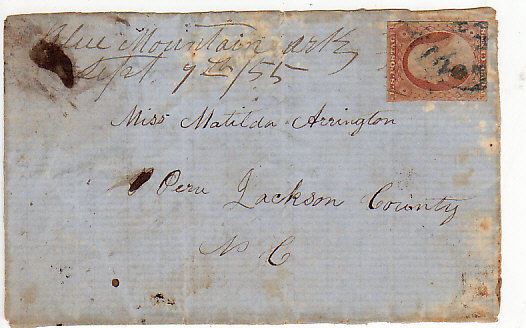 Blue Mountain ark
Sept 9th/55
Miss Matilda Arrington
Peru Jackson County
N C